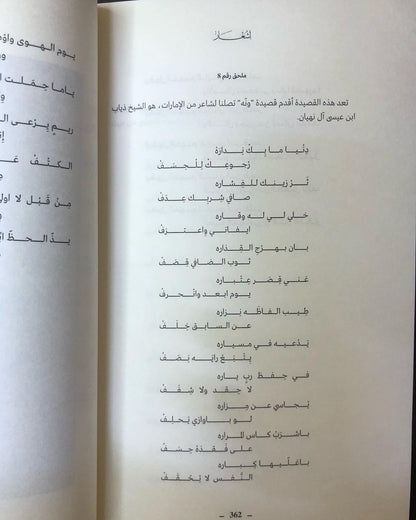 أشعار
ملحق رقم 8
تعد هذه القصيدة أقدم قصيدة "ونّه" تصلنا لشاعر من الإمارات، هو الشيخ ذياب
ابن عيسى آل نهيان.
دنيا ما بك بدارة
رجوعك للخسف
نر زينك للفشاره
صافي شربك عذف
خلي لي له وقاره
ايفاني واعترف
بان بهزج القذاره
ثوب الصافي قضف
عني قصر عتباره
يوم ابعد وانحرف
طيب الفاظه نزاره
عن السابق خلف
يدعيه في مسياره
يتبع رايه نصف
في حفظ رب ياره
لا حقد ولا شفف
يجاسي عن مزاره
لو باوازي يحلف
باشرب كاس المراره
على فقده حسف
باغليها كباره
النفس لا يخفف
– 362 –
يوم الهوى واو
ياما حملت ا
ريم يرعى ال
الكتف ع
من قبل لا اول
بذ الحظ أ